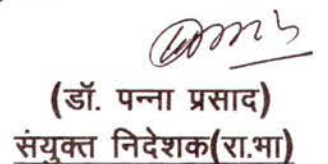 (डॉ. पन्ना प्रसाद)
संयुक्त निदेशक(रा.भा)